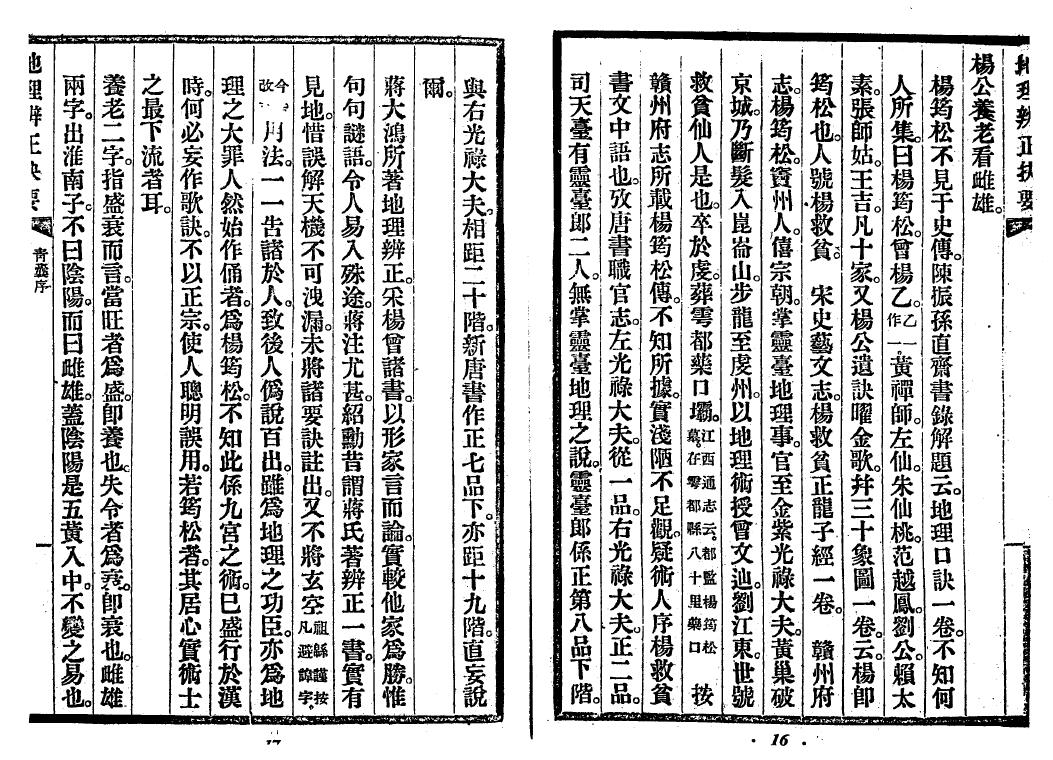 地理辨正抉要
楊公養老看雌雄。
楊筠松不見于史傳。陳振孫直齋書錄解題云。地理口訣一卷。不知何
人所集。曰楊筠松。曾楊乙。乙一作。黃禪師。左仙。朱仙桃。范越鳳。劉公。賴太
素。張師姑。王吉。凡十家。又楊公遺訣曜金歌。幷三十象圖一卷。云楊卽
筠松也。人號楊救貧。 宋史藝文志。楊救貧正龍子經一卷。 贛州府
志。楊筠松。竇州人。僖宗朝。掌靈臺地理事。官至金紫光祿大夫。黃巢破
京城。乃斷髮入崑崙山。步龍至虔州。以地理術授曾文辿劉江東。世號
救貧仙人是也。卒於虔。葬雩都藥口壩。江西通志云。都監楊筠松墓。在雩都縣八十里藥口 按
贛州府志所載楊筠松傳。不知所據。實淺陋不足觀。疑術人序楊救貧
書文中語也。攷唐書職官志。左光祿大夫。從一品。右光祿大夫。正二品。
司天臺有靈臺郎二人。無掌靈臺地理之說。靈臺郎係正第八品下階。
16
與右光祿大夫。相距二十階。新唐書作正七品下。亦距十九階。直妄說
爾。
蔣大鴻所著地理辨正。采楊曾諸書。以形家言而論。實較他家爲勝。惟
句句謎語。令人易入殊途。蔣注尤甚。紹勳昔謂蔣氏著辨正一書。實有
見地。惜誤解天機不可洩漏。未將諸要訣註出。又不將玄空祖緜謹按凡避諱字。
今改用法。一一告諸於人。致後人僞說百出。雖爲地理之功臣。亦爲地
理之大罪人。然始作俑者。爲楊筠松。不知此係九宮之術。已盛行於漢
時。何必妄作歌訣。不以正宗。使人聰明誤用。若筠松者。其居心實術士
之最下流者耳。
養老二字。指盛衰而言。當旺者爲盛。卽養也。失令者爲衰。卽衰也。雌雄
兩字。出淮南子。不曰陰陽。而曰雌雄。蓋陰陽是五黃入中。不變之易也。
地理辨正抉要
靑囊序
一
17